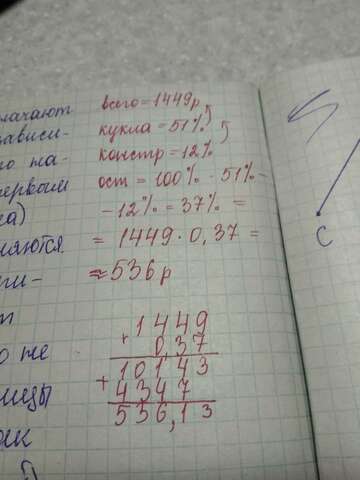 лачают
зависи-
первым
ка)
няются
ги-
т
о же
ницы
ик
всего = 1449р
кукла = 51%
констр = 12%
ост = 100% - 51% -
- 12% = 37% =
= 1449 · 0,37 =
≈ 536р
1449
0,37
10143
+
4347
536,13
C